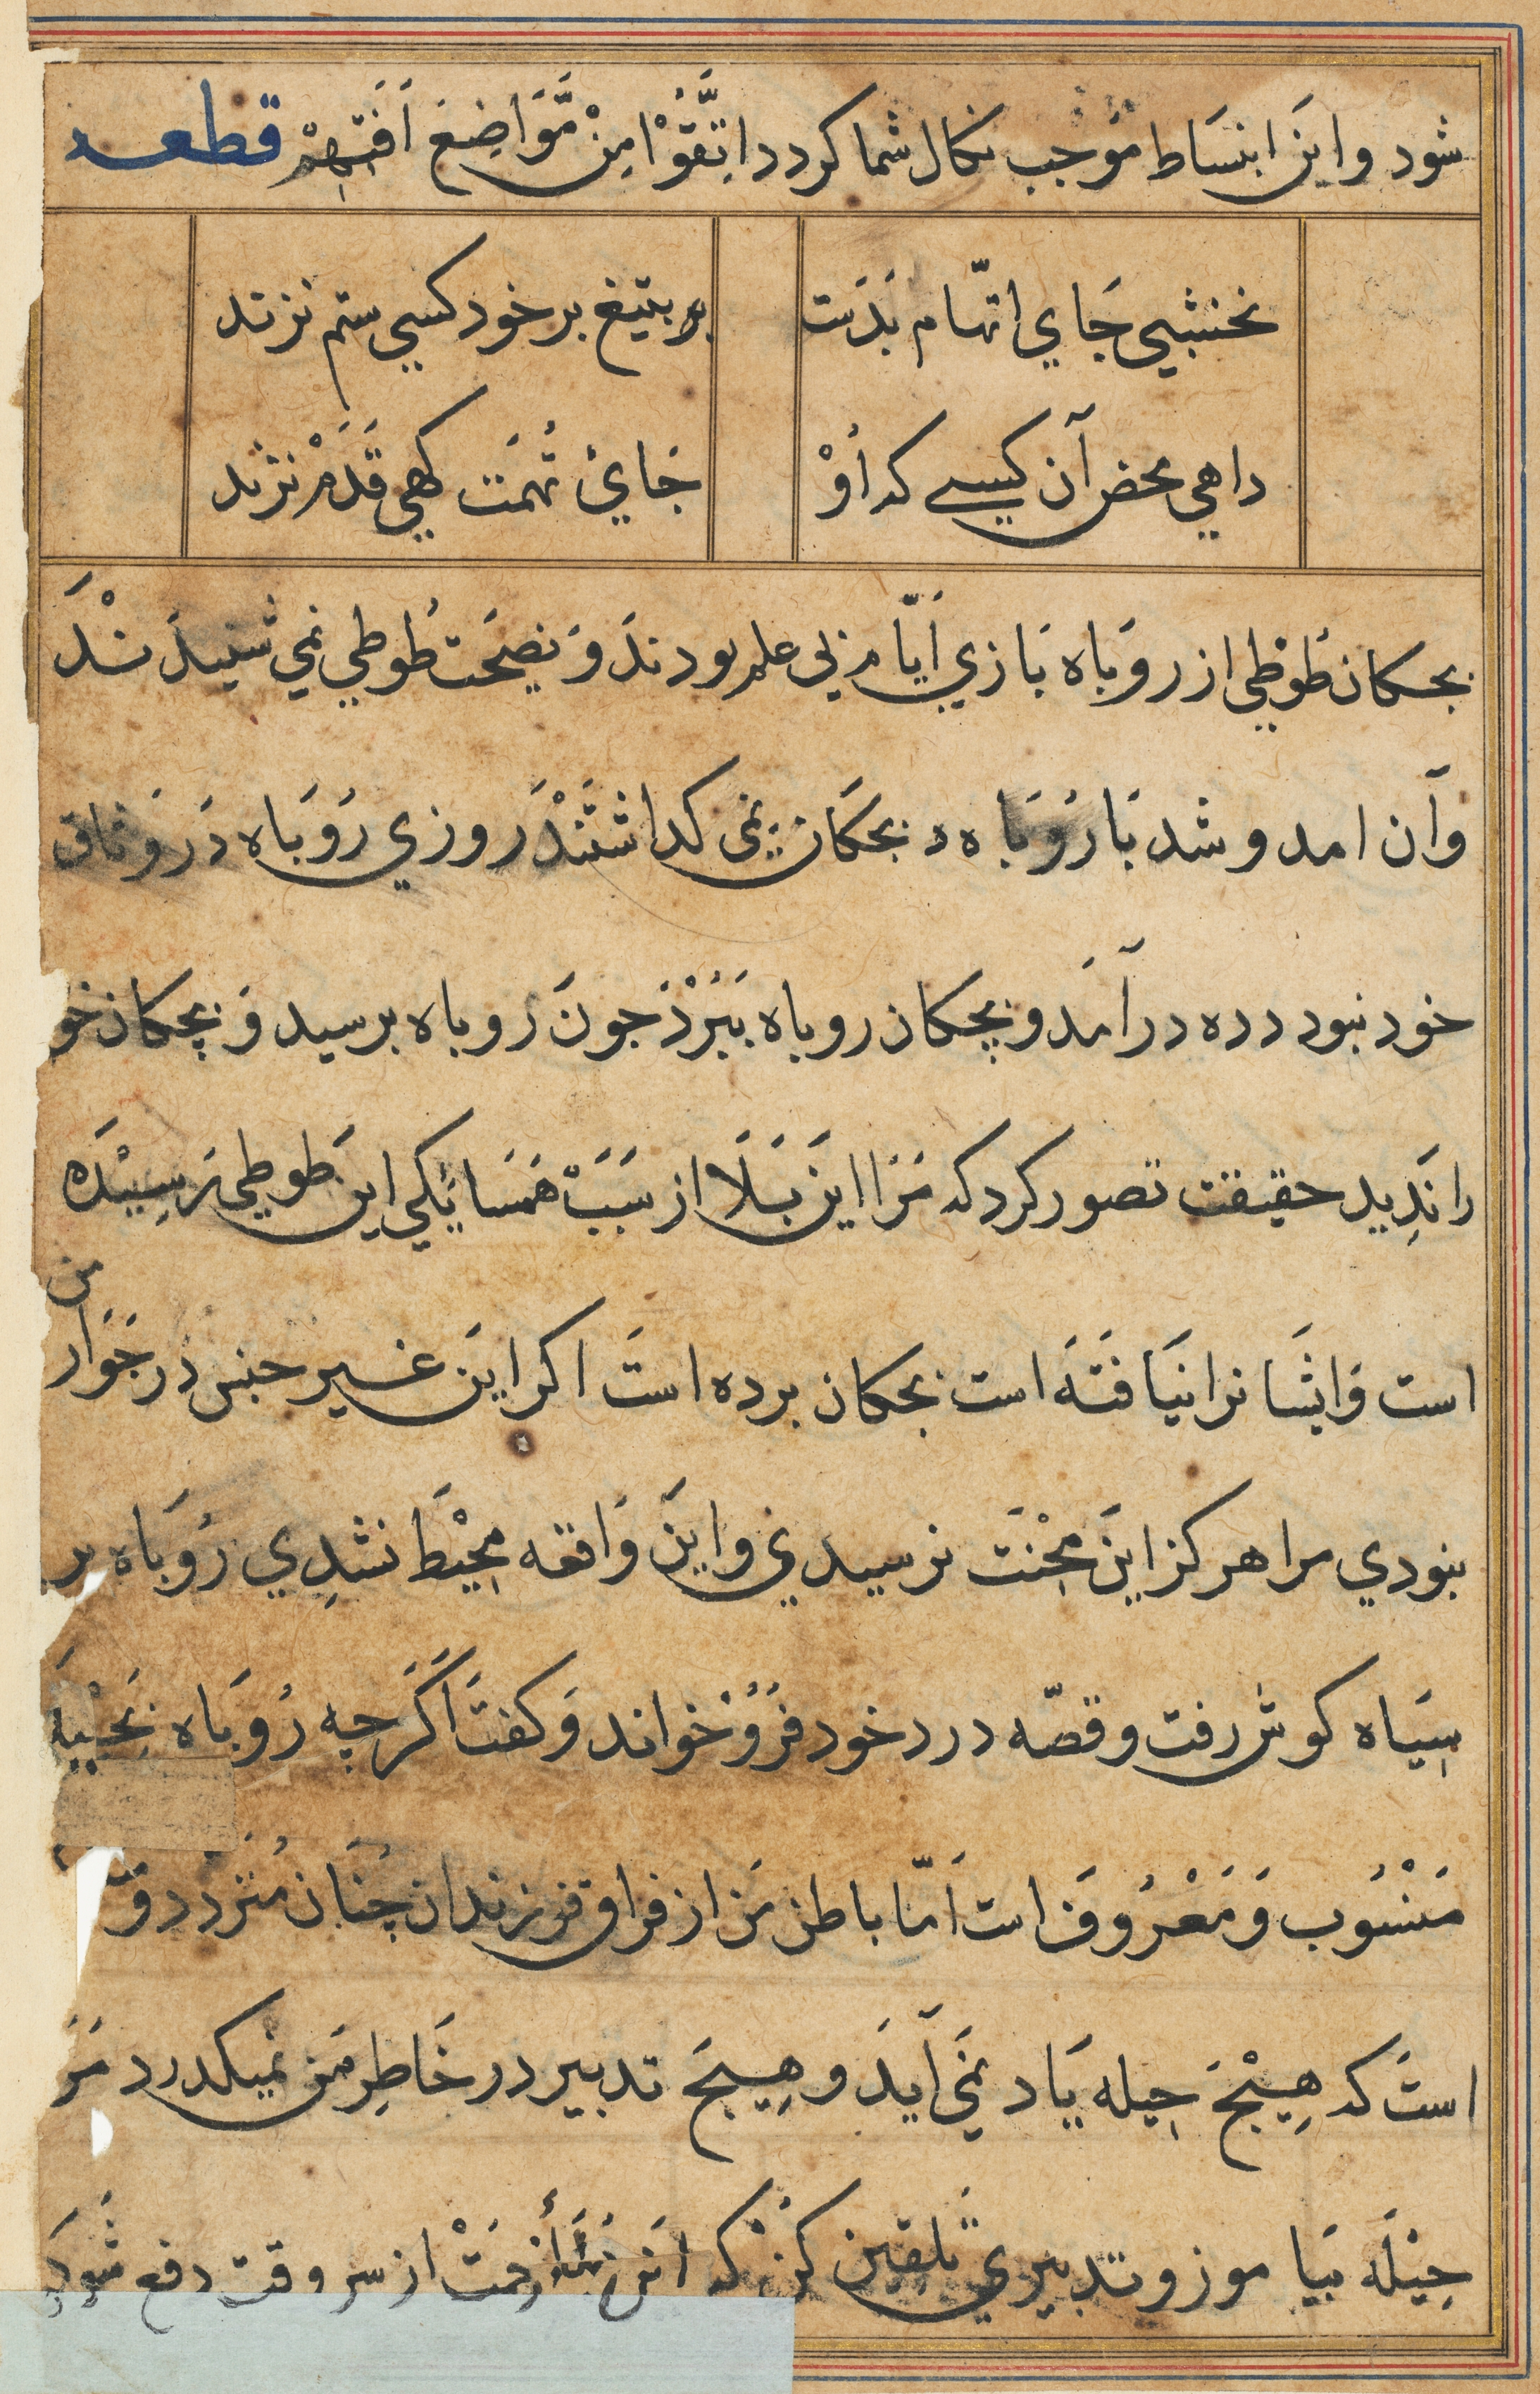 شود واین انبساط موجب نکال شما کردد اتَّقَوْا مِنْ مَّوَاضِعَ آفَتِهِمْ قطعه
نخشبي جَاي اتّهام بَدَست بر بتیغ بر خود کسي ستم نزند
داهي محض آن کیسے که اُوْ جَايْ تُهمَت کهي قَدَمْ نزند
بچکان طَوطي از روَباه بَازي اَیّام بی علم بودندَ وَ نصیحَت طُوطي نمي شنیدَنْدَ
وآن امد و شد بَا رُوَبَاه بچکان نمی کداشتَنْدَ روزي رُوَبَاه دَر وَثاق
خود نبود دده در آمَد و بچکان روباه بَبُرْدَ جونَ روباه برسید وَ بچکان خو
را نَدِید حقیقت تصور کرد که مَرَا اینَ بَلَا از سَبَبَ همَسَایکي این طَوطي رَسِیْدَه
است وَ ایشَا نرا نیَافتَه است بچکان برده استَ اکر اینَ غیر جنس در جَوَار من
نبودي مرا هرکز اینَ مِحْنَت نرسیدي واینَ وَاقعه مِحْیَط نشدِي رُوَبَاه بر
سِیَاه کوش رفت و قصّه درد خود فرُوْ خواند وَ کفتَ اَکَرَچه رُوَبَاه بَحیْلَه
مَنْسُوب وَ مَعْرُوفَ است اَمّا باطن مَن از فراق فرزندان چُنَان مُتَردد و
استَ که هِیْچَ حِیله یَاد نمَي آیدَ و هِیچَ تدبیر در خَاطِر مَن نمیکدرد مَرَ
حِیْلَه بَیا موز و تدبیري تَلقین کنْ که این زحَمَتْ از سر وقت دفع شَوَد